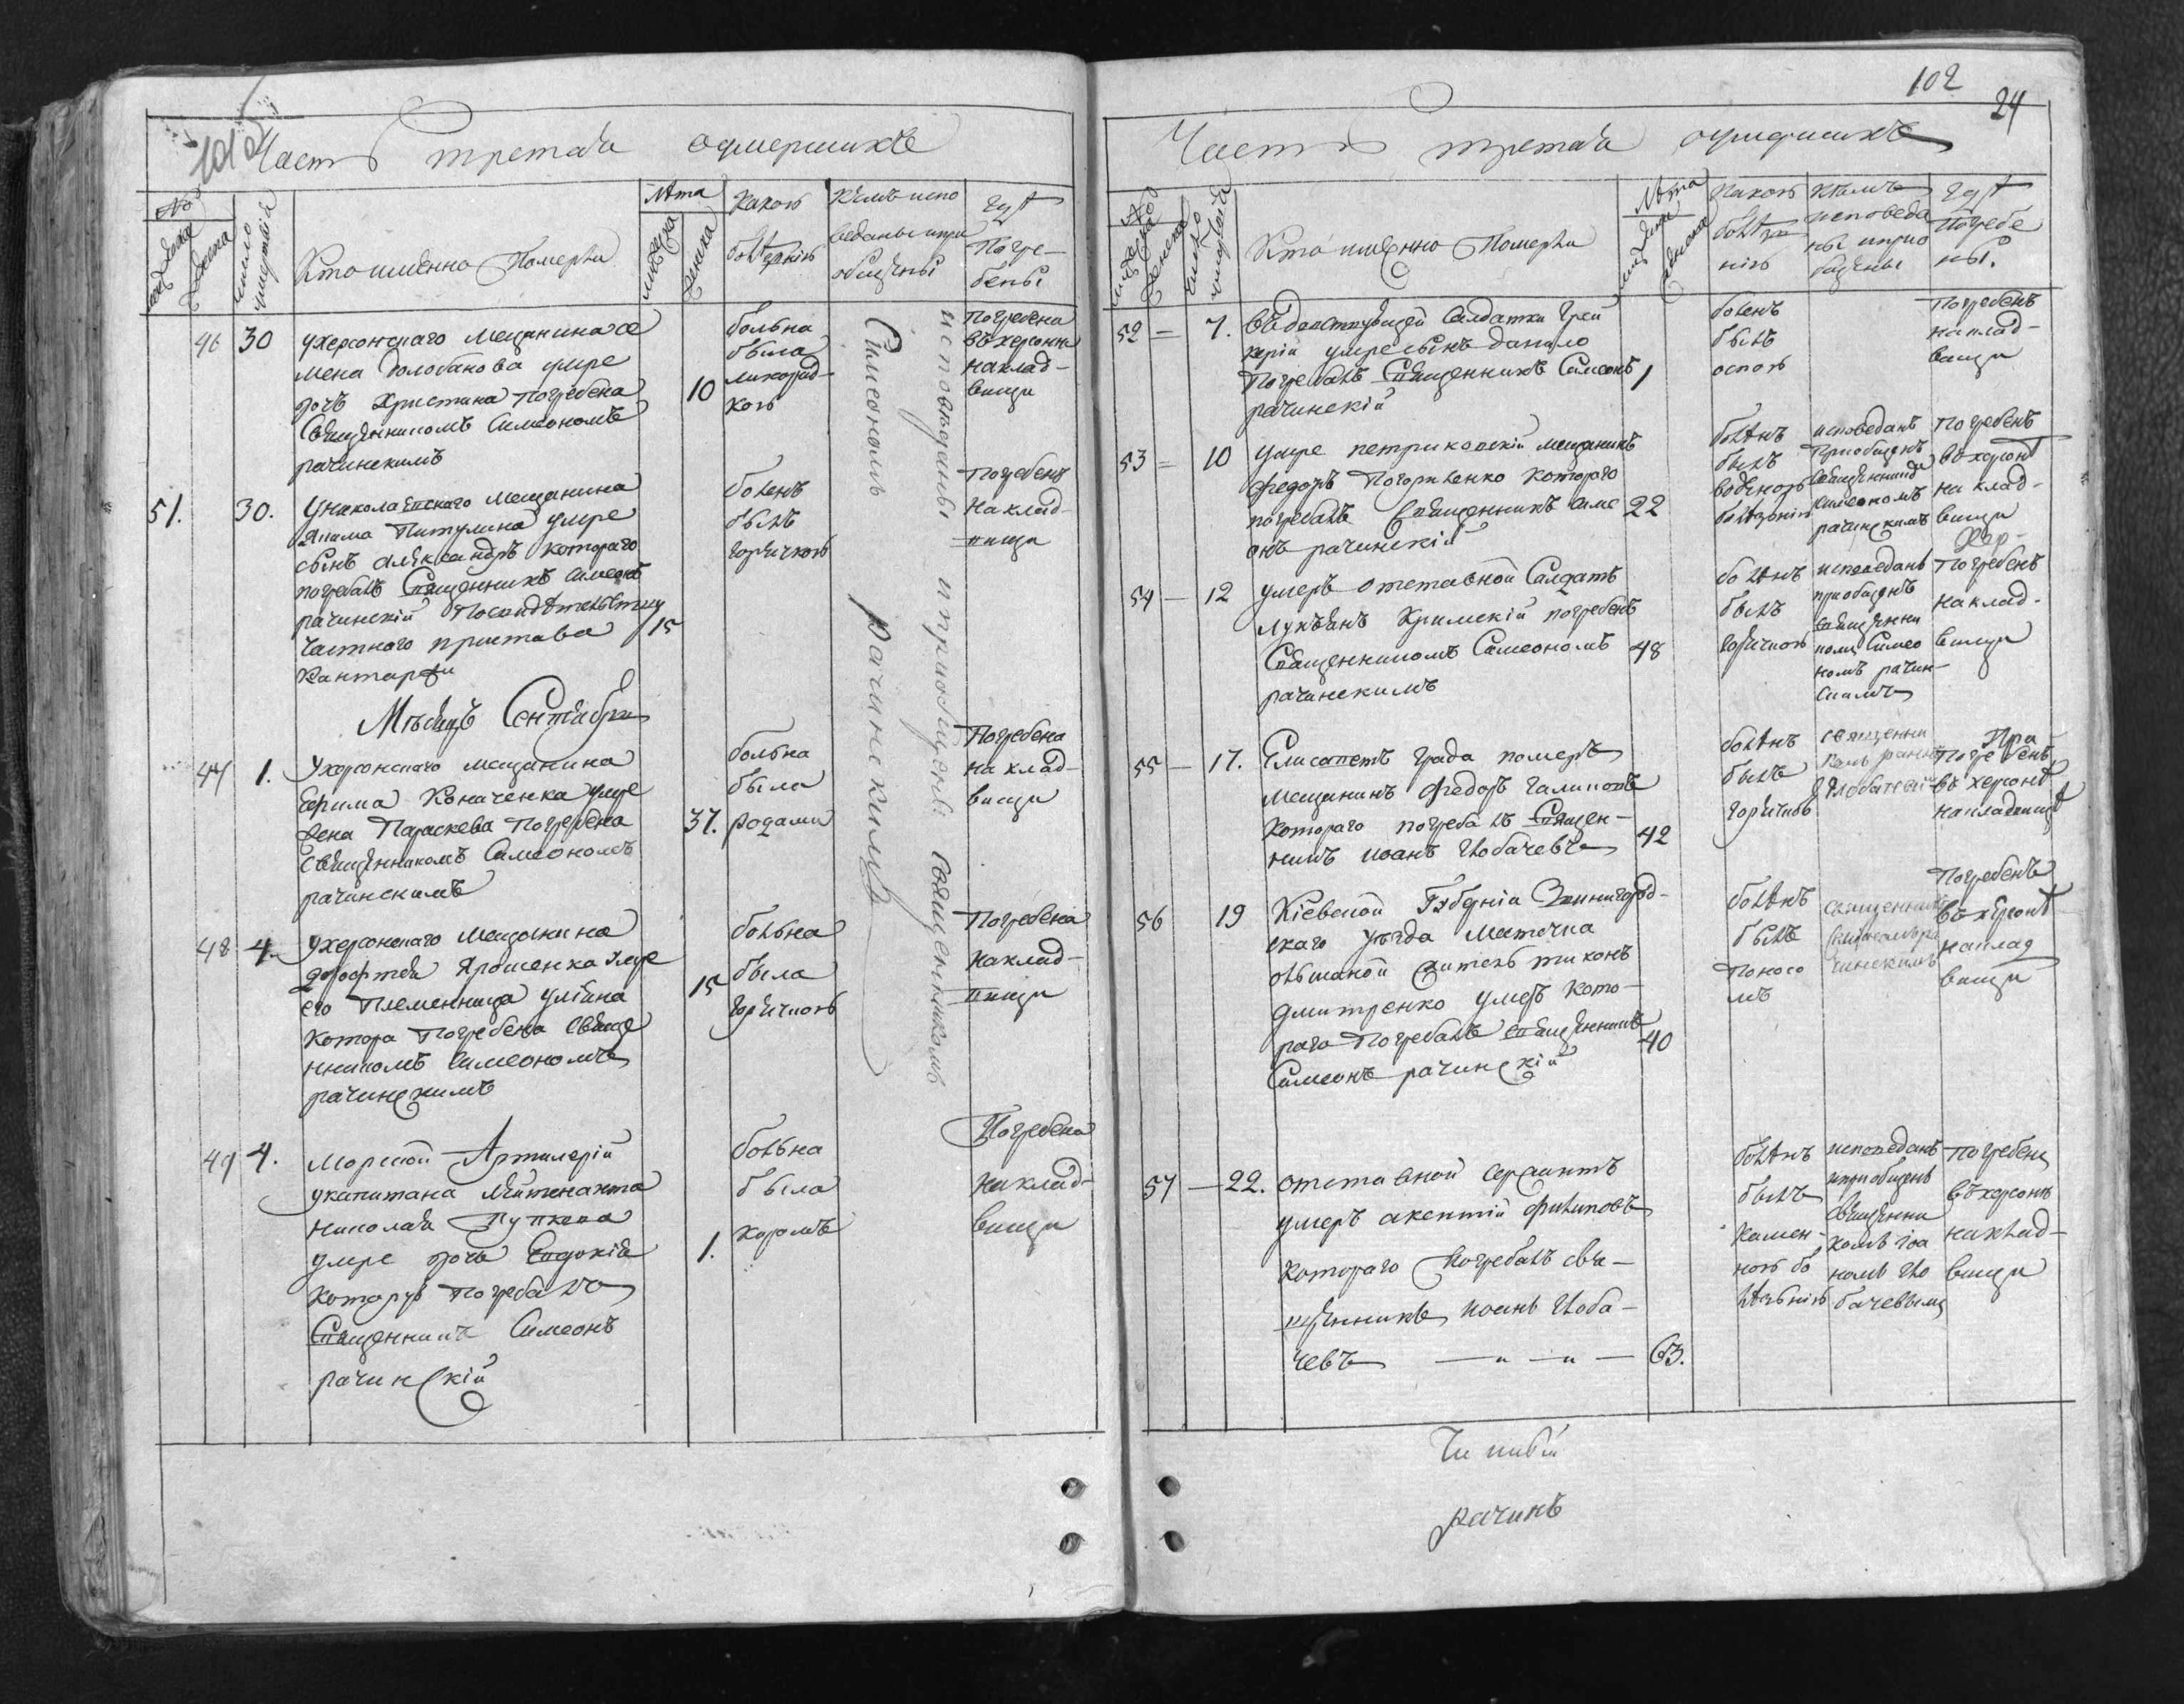 101
Часть третая оумершихъ
№
число умертвiя
Кто имянно Померли
лѣта
Какою болѣзнiю
Кѣмъ исповеданы и приобщены
Гдѣ Погребены
46 30 ухерсонскаго мещанина се
мена Долобанова умре
дочъ христина погребена
Священникомъ Симеономъ
рачинскимъ
10
больна
была
лихорад-
кою
Погребена
въ херсонѣ
наклад-
бищи
исповѣданы и приобщены священникомъ
Симеономъ рачинскимъ
51. 30. Униколаевскаго мещанина
Якима Питулина умре
сынъ александръ котораго
погребалъ Священникъ Симеонъ
рачинскiй Посвидѣтельству
Частного пристава
15
боленъ
былъ
горячкою
Погребенъ
наклад-
бищи
Мѣсяцъ Сентябрь
47 1. Ухерсонскаго мещанина
Ефима Коначенка умре
жена Параскева Погребена
Священникомъ Симеономъ
рачинскимъ
37.
больна
была
родами
Погребена
на клад-
бищи
48 4. ухерсонскаго мещанина
дорофтея Ярошенка умре
его племенница улiяна
котора погребена свяще
нникомъ Симеономъ
рачинскимъ
15
больна
была
горячкою
Погребена
наклад-
бищи
49 4. Морской Артилерiй
укапитана лейтенанта
николая Пупкева
умре дочь Евдокiя
которую погребалъ
Священникъ Симеонъ
рачинскiй
1.
больна
была
коромъ
Погребена
наклад-
бищи
102
24
Часть третая оумершихъ
№
число умертвiя
Кто имянно Померли
лѣта
Какою болѣзнiю
Кѣмъ исповеданы и приобщены
Гдѣ Погребены.
52 7. Салдатки
умре сынъ данило
Погребалъ Священникъ Симеонъ
рачинскiй
1
боленъ
былъ
оспою
Погребенъ
наклад-
бищи
53 10 умре петриковскiй мещанинъ
федоръ Погориленко котораго
погребалъ Священникъ Симе
онъ рачинскiй
22
болѣнъ
былъ
водяною
болѣзнiю
исповеданъ
приобщенъ
Священникомъ
Симеономъ
рачинскимъ
Погребенъ
въ херсонѣ
на клад-
бищи
54 12 умеръ отставной Салдатъ
Лукъянъ Кримскiй погребенъ
Священникомъ Симеономъ
рачинскимъ
48
болѣнъ
былъ
горячкою
исповеданъ
приобщенъ
священни
комъ Симео
номъ рачин-
скимъ
Погребенъ
наклад-
бищи
55 17. Елисаветъ града померъ
мещанинъ федоръ галиновъ
котораго погребалъ Священ-
никъ иоанъ Глобачевъ
42
болѣнъ
былъ
горячкою
священни
Погребенъ
въ херсонѣ
накладбищѣ
56 19 Кiевской Губернiи Звенигород-
скаго уезда местечка
олшаной житель тихонъ
дмитренко умеръ кото-
раго погребалъ священникъ
Симеонъ рачинскiй
40
болѣнъ
былъ
поносо
мъ
священникъ
Симеомъ ра
чинскимъ
Погребенъ
въ херсонѣ
наклад
бищи
57 22. отставной сержантъ
умеръ акентiй филиповъ
котораго погребалъ свя-
щенникъ иоанъ Глоба-
чевъ
63.
болѣнъ
былъ
камен-
ною бо
лѣзьнiю
исповеданъ
и приобщенъ
священни
комъ iоа
номъ Гло
бачевымъ
погребенъ
въ херсонѣ
наклад-
бищи
рачинъ